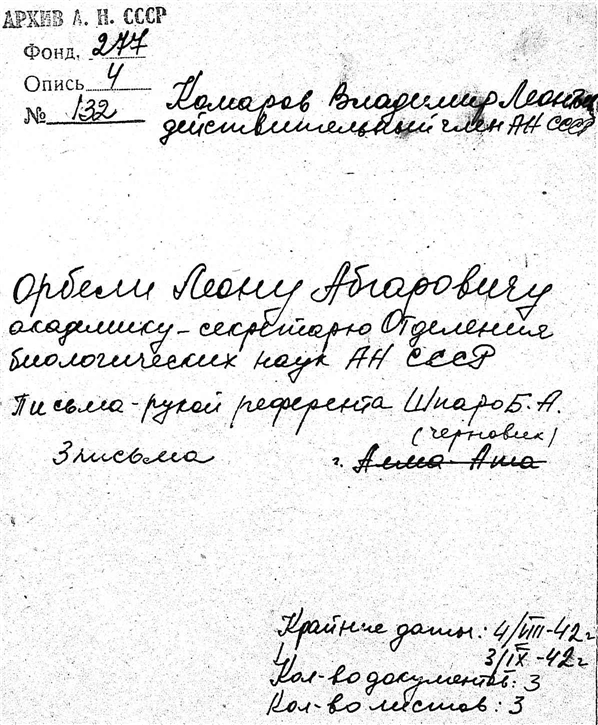 АРХИВ А. Н. СССР
Фонд. 277
Опись 4
№ 132
Комаров Владимир Леонтьев
действительный член АН СССР
Орбели Леону Абгаровичу
академику-секретарю Отделения
биологических наук АН СССР
Письма - рукой референта Шпаро Б. А.
(черновик)
3 письма г. Алма-Ата
Крайние даты: 4/VIII-42 г
3/IX-42 г
Кол-во документов: 3
Кол-во листов: 3